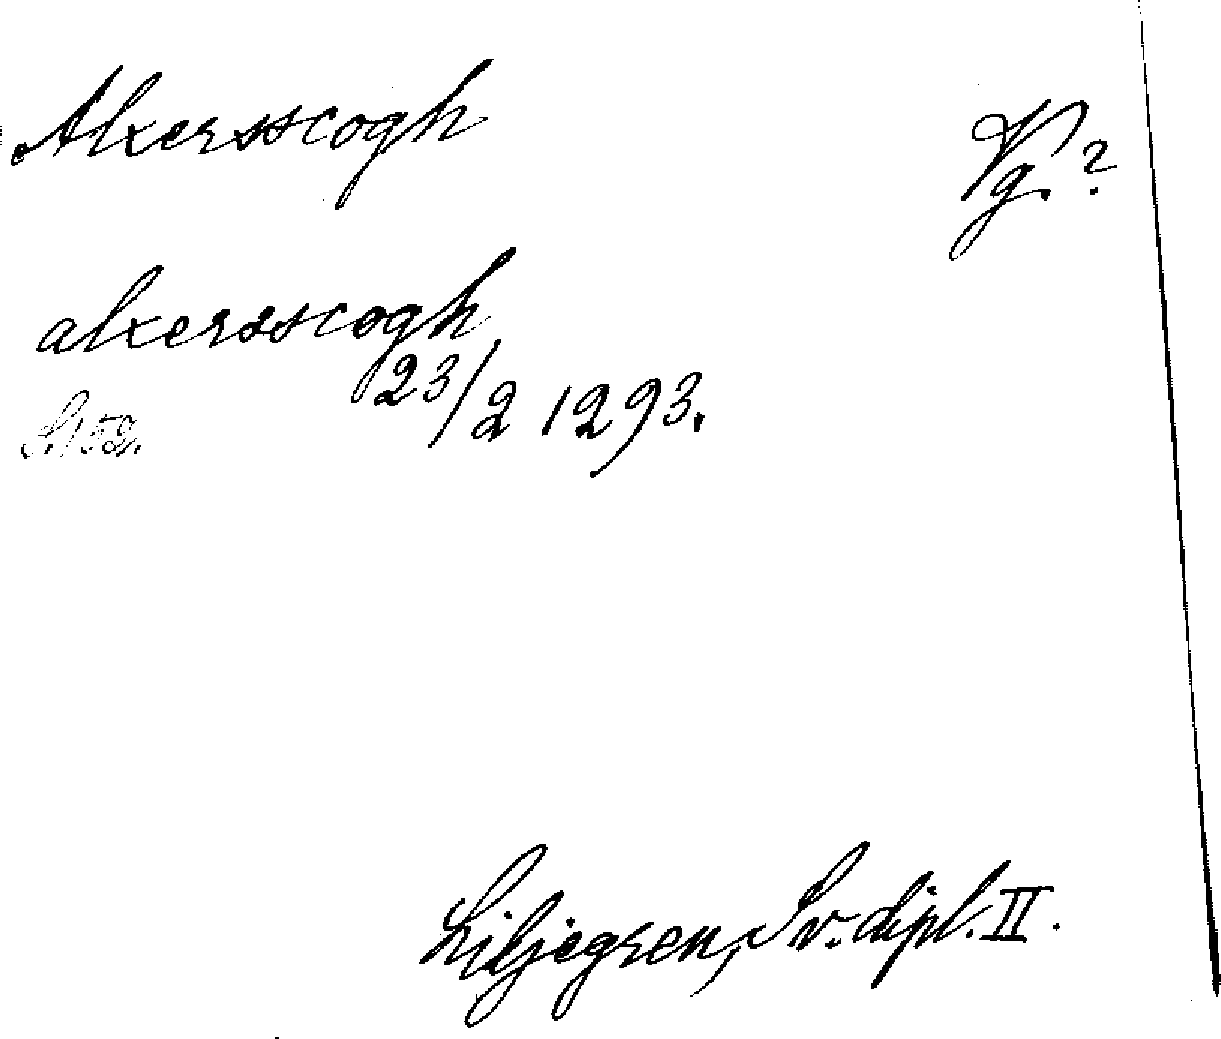 Alxersscogh
Vg.?
alxersscogh
23/2 1293.
S. 152.
Liljegren, Sv. dipl. II.